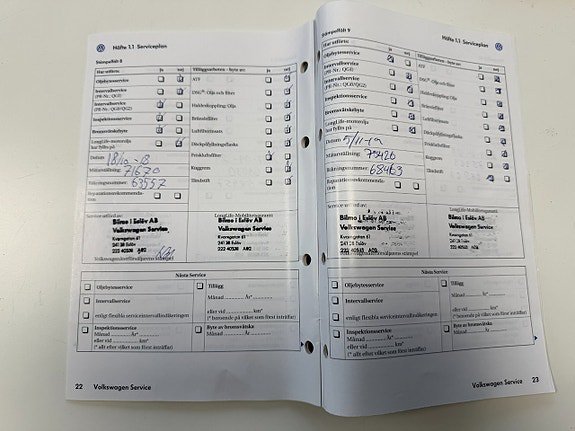 Häfte 1.1 Serviceplan
Stämpelfält 8
Har utförts: ja nej Tilläggsarbeten - byte av: ja nej
Oljebytesservice ATF
Intervallservice DSG®: Olja och filter
(PR-Nr.: QG1)
Intervallservice Haldexkoppling: Olja
(PR-Nr.: QG0/QG2)
Inspektionsservice Bränslefilter
Bromsvätskebyte Luftfilterinsats
LongLife-motorolja Däcktätningsflaska
har fyllts på
Datum 18/10-18 Friskluftsfilter
Mätarställning: 71670 Kuggrem
Räkningsnummer: 63557 Tändstift
Reparationsrekommendation
Service utförd av: LongLife-Mobilitetsgaranti
Bilmo i Eslöv AB Bilmo i Eslöv AB
Volkswagen Service Volkswagen Service
Kvarngatan 61 Kvarngatan 61
241 38 Eslöv 241 38 Eslöv
Nästa Service
Oljebytesservice Tillägg
Månad År*
Intervallservice eller vid km*
enligt flexibla serviceintervallindikeringen (* beroende på vilket som först inträffar)
Inspektionsservice Byte av bromsvätska
Månad År* Månad År
eller vid km*
(* allt efter vilket som först inträffar)
22 Volkswagen Service
Häfte 1.1 Serviceplan
Stämpelfält 9
Har utförts: ja nej Tilläggsarbeten - byte av: ja nej
Oljebytesservice ATF
Intervallservice DSG®: Olja och filter
(PR-Nr.: QG1)
Intervallservice Haldexkoppling: Olja
(PR-Nr.: QG0/QG2)
Inspektionsservice Bränslefilter
Bromsvätskebyte Luftfilterinsats
LongLife-motorolja Däcktätningsflaska
har fyllts på
Datum 5/11-19 Friskluftsfilter
Mätarställning: 75426 Kuggrem
Räkningsnummer: 68463 Tändstift
Reparationsrekommendation
Service utförd av: LongLife-Mobilitetsgaranti
Bilmo i Eslöv AB Bilmo i Eslöv AB
Volkswagen Service Volkswagen Service
Kvarngatan 61 Kvarngatan 61
241 38 Eslöv 241 38 Eslöv
Nästa Service
Oljebytesservice Tillägg
Månad År*
Intervallservice eller vid km*
enligt flexibla serviceintervallindikeringen (* beroende på vilket som först inträffar)
Inspektionsservice Byte av bromsvätska
Månad År* Månad År
eller vid km*
(* allt efter vilket som först inträffar)
Volkswagen Service 23